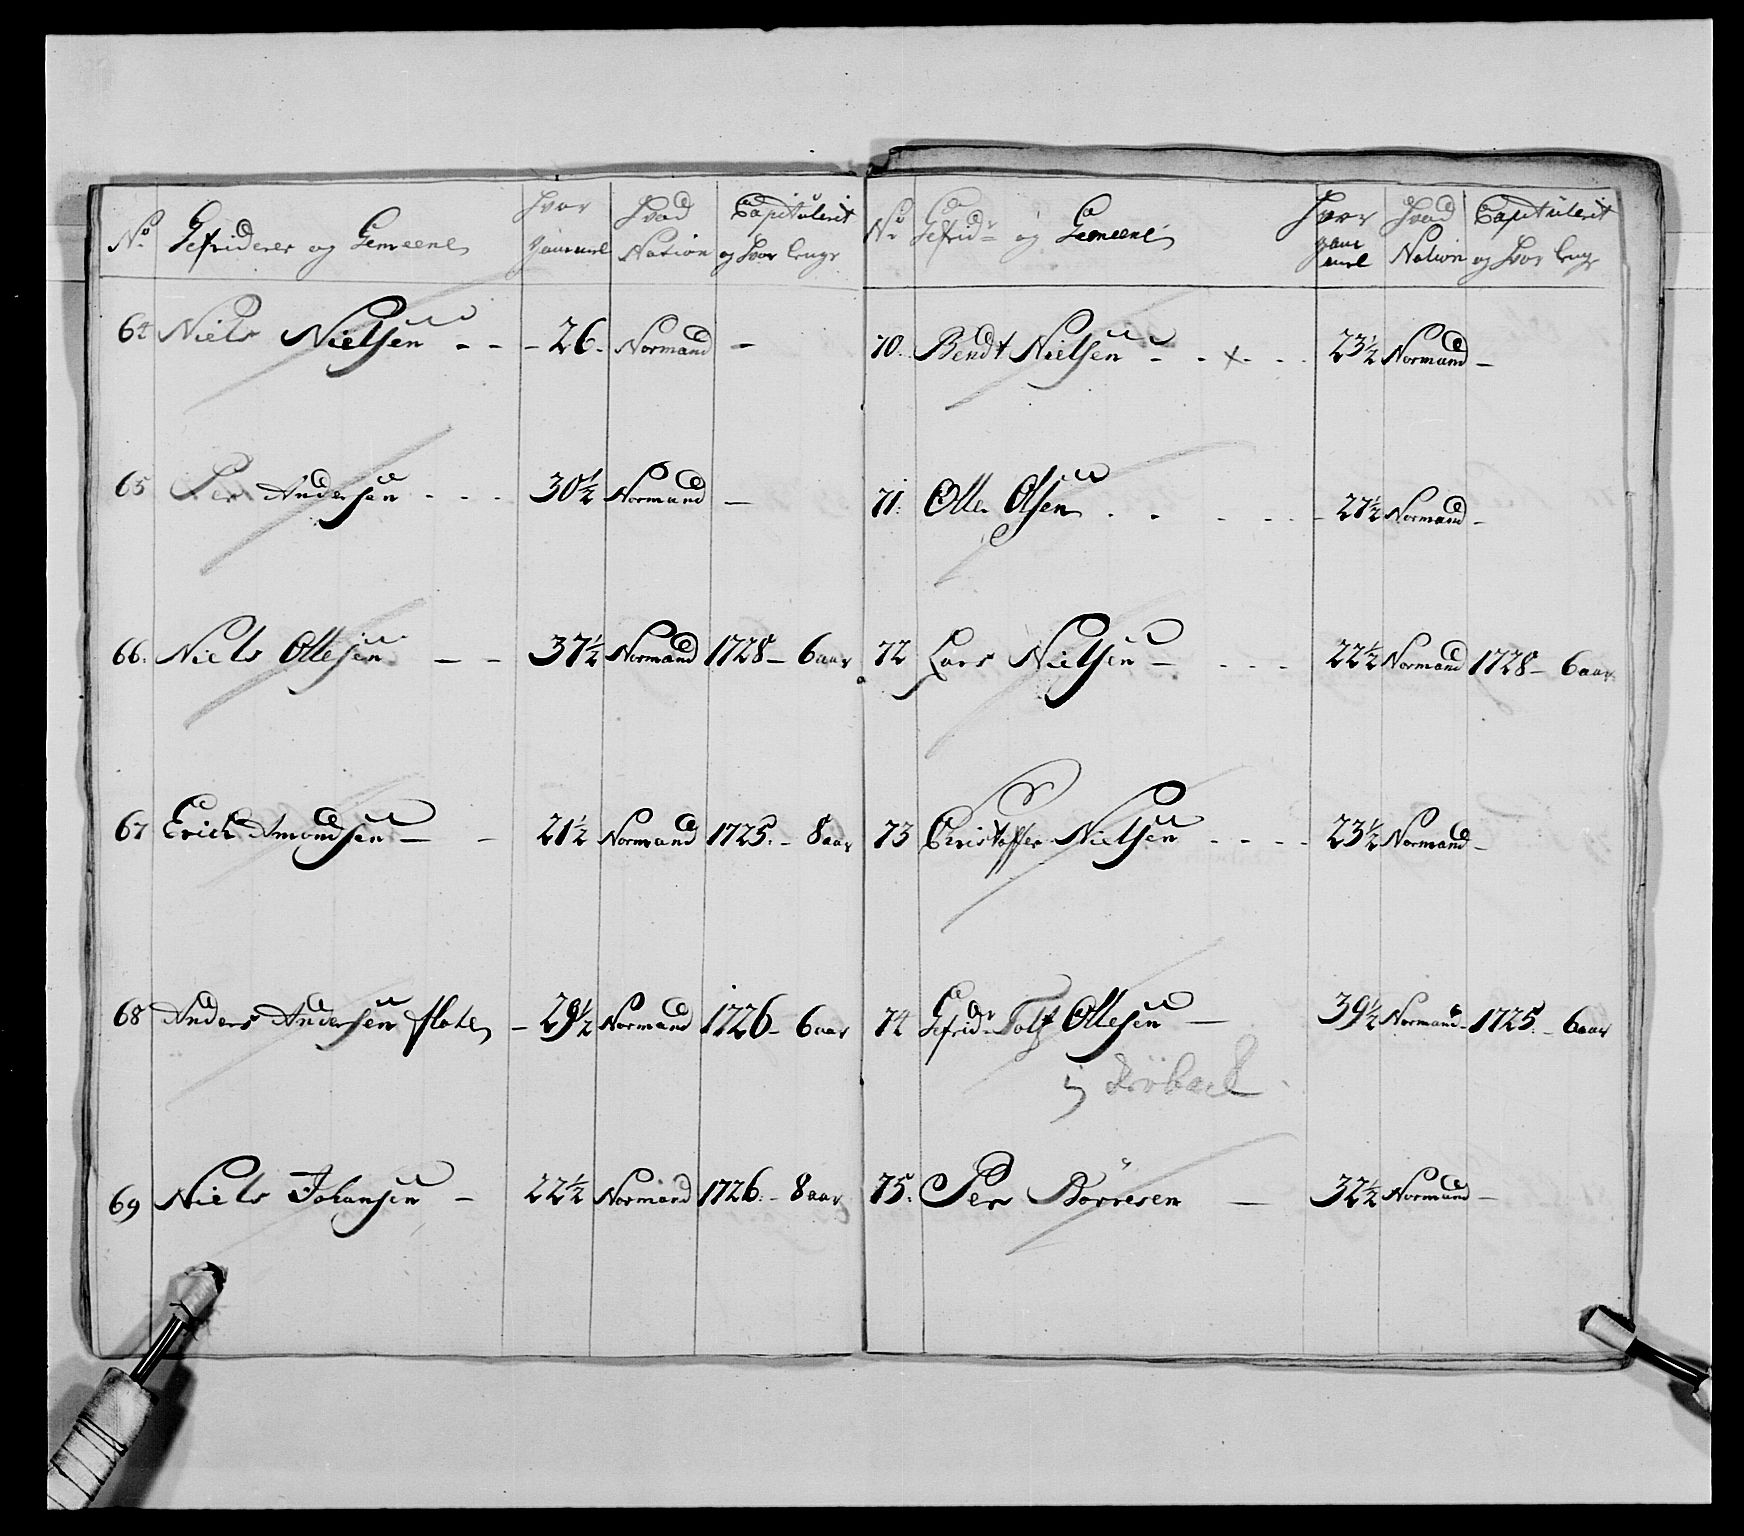 No Gefriderer og Gemeene Hvor gammel Hvad Nation Capitulerit og hvor lenge
64 Niels Nielsen - - - 26. Normand -
65 Per Andersen - - - 30½ Normand -
66. Niels Ollesen - - 37½ Normand 1728 - 6 aar
67 Erich Amondsen - - 21½ Normand 1725. - 8 aar
68 Anders Andersen flaten - 29½ Normand 1726 - 6 aar
69 Niels Johansen - 22½ Normand 1726. - 8 aar
No Gefridr og Gemeene Hvor gam mel Hvad Nation Capitulerit og hvor lenge
70. Bendt Nielsen - - x - - 23½ Normand -
71. Olle Olsen . . . - - - 27½ Normand -
72 Lars Nielsen - - - - 22½ Normand 1728 - 6 aar
73 Christoffer Nielsen - - - - 23½ Normand -
74 Gefridr Tolf Ollesen - 39½ Normand - 1725. - 6 aar
i Dröback
75. Per Börresen - 32½ Normand -